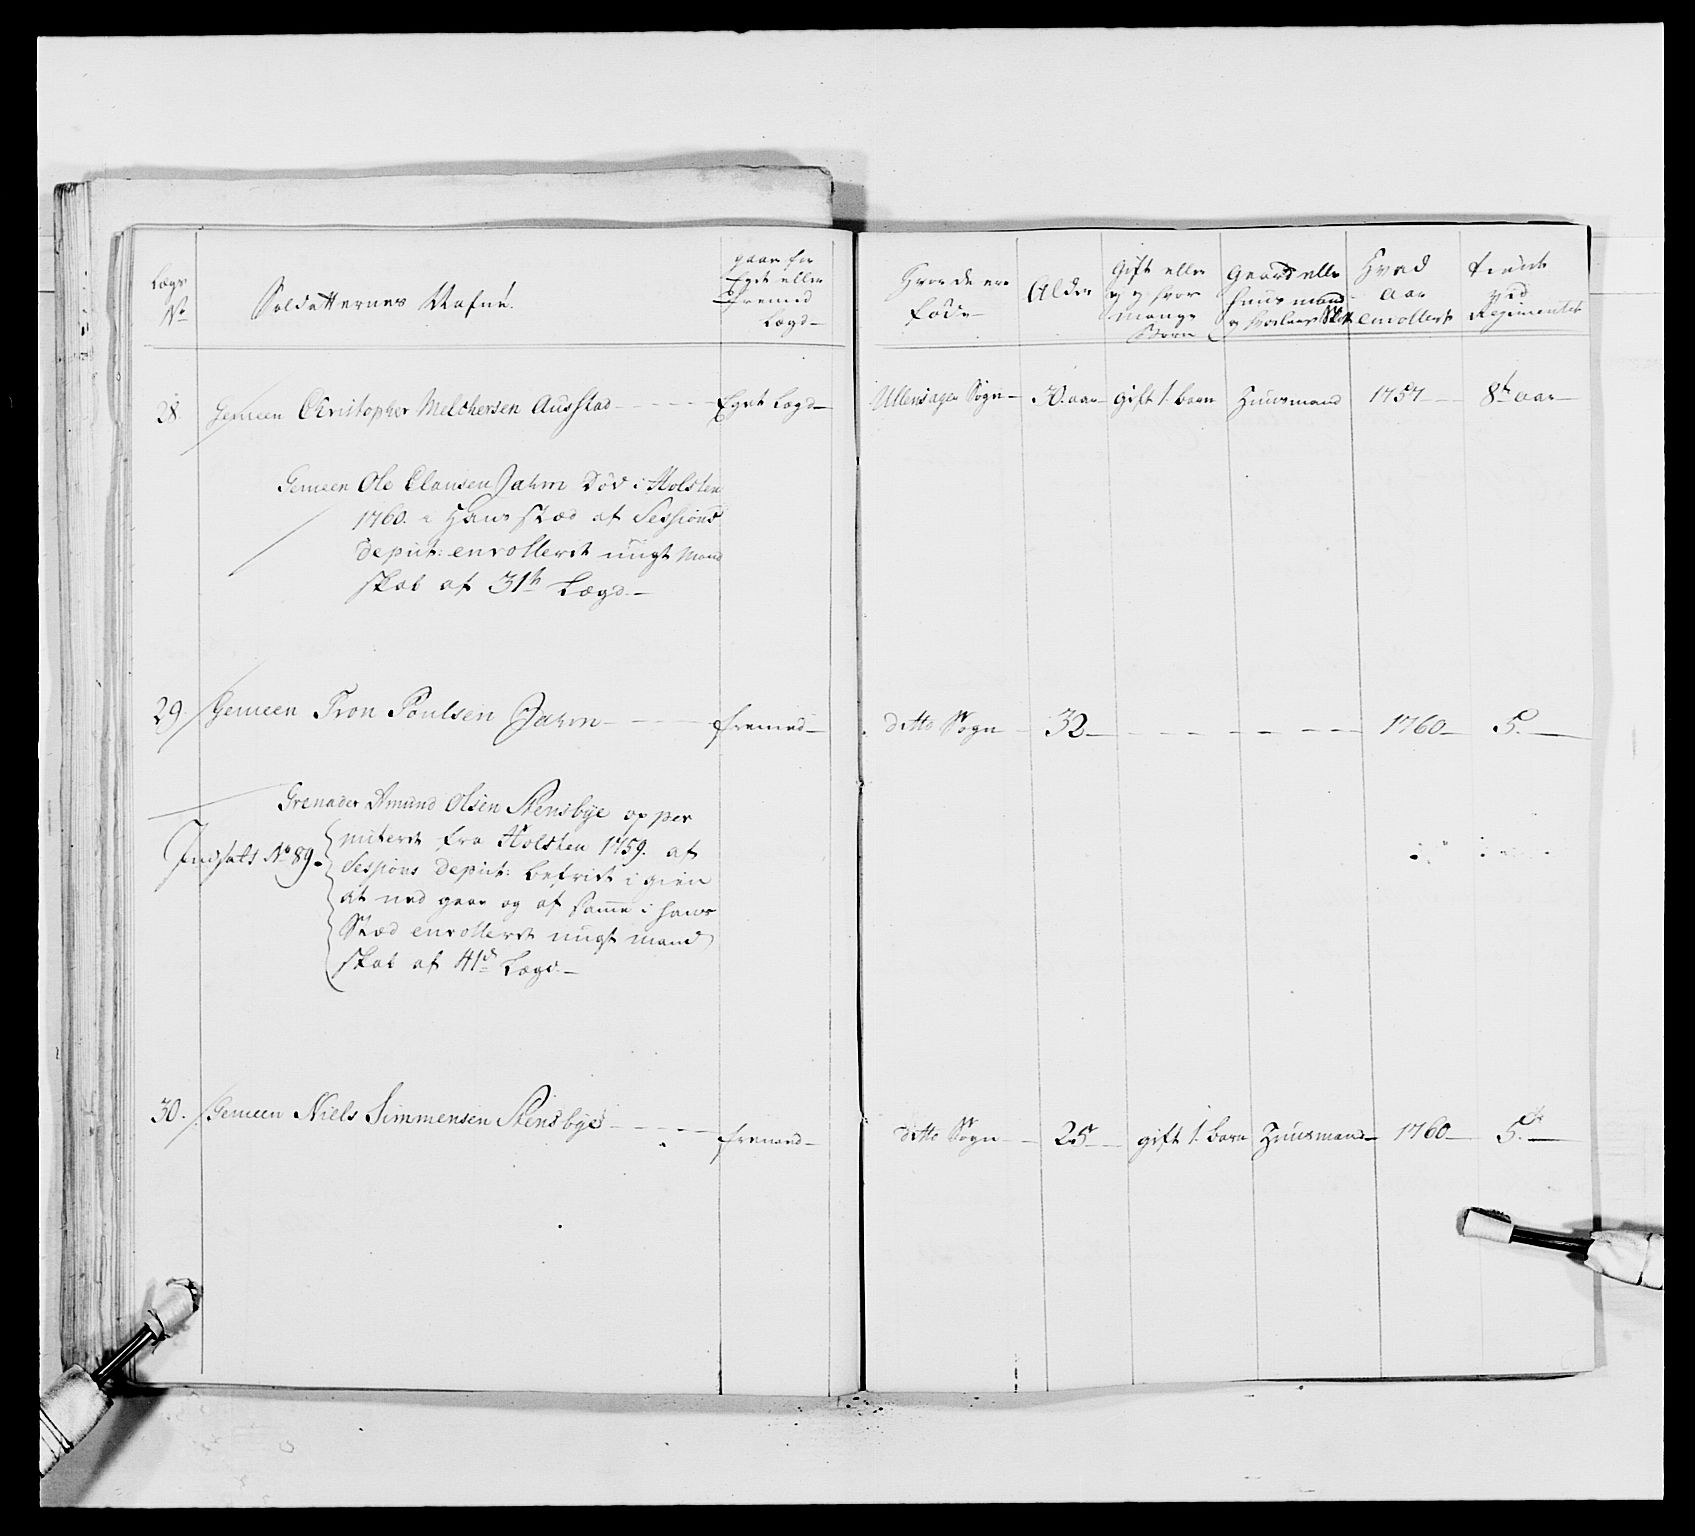 Lægs No
Soldatternes Nafne.
gaar for Eget eller fremed Lægd
Hvor de ere føde
Alder
Gift eller ey og hvor mange Børn
Gaard eller huus mand
Hvad Aar enrollert
tient ved Regimentet
28. Gemeen Christopher Melchersen Ausstad Eget Lægd Ullensager Sogn 30. aar gift 1. barn Huusmand 1757 8te aar
Gemeen Ole Clausen Jahm Død i Holsten
1760. i Hans stæd af Sessions
deput: enrolleret nügt Mand
skab af 31te Lægd.
29. Gemeen Tron Poulsen Jahm fremed ditto Sogn 32 1760 5.
Grenader Amund Olsen Stensbye op per
Indsats No 89.
miteret fra Holsten 1759. af
Sessions deput: befriet i gien
at ned gaae og af samme i hans
Stæd enrolleret nügt mand
skab af 41de Lægd.
30. Gemeen Niels Simmensen Stensbye fremed ditto Sogn 25 gift 1. barn Huusmand 1760 5.